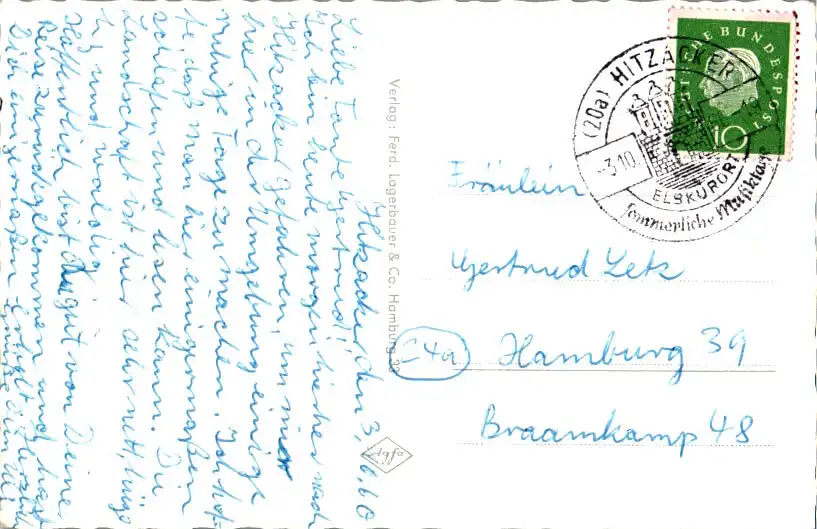 Hitzacker, den 3.10.60
Liebe Tante Gertrud!
Ich bin heute morgen hierher nach
Hitzacker gefahren, um hier
und in der Umgebung einige
ruhige Tage zu machen. Ich hof-
fe, daß man hier einigermaßen
schlafen und lesen kann. Die
Landschaft ist hier sehr nett, hüge-
lig und waldig.
Hoffentlich bist Du gut von Deiner
Reise zurückgekommen und hast
Dich einigermaßen erholt. Herzliche
Grüße Dein
Verlag: Ferd. Lagerbauer & Co. Hamburg
Agfa
DEUTSCHE BUNDESPOST
10
(20a) HITZACKER
-3.10.
ELBKURORT
Sommerliche Musiktage
Fräulein
Gertrud Letz
24a Hamburg 39
Braamkamp 48